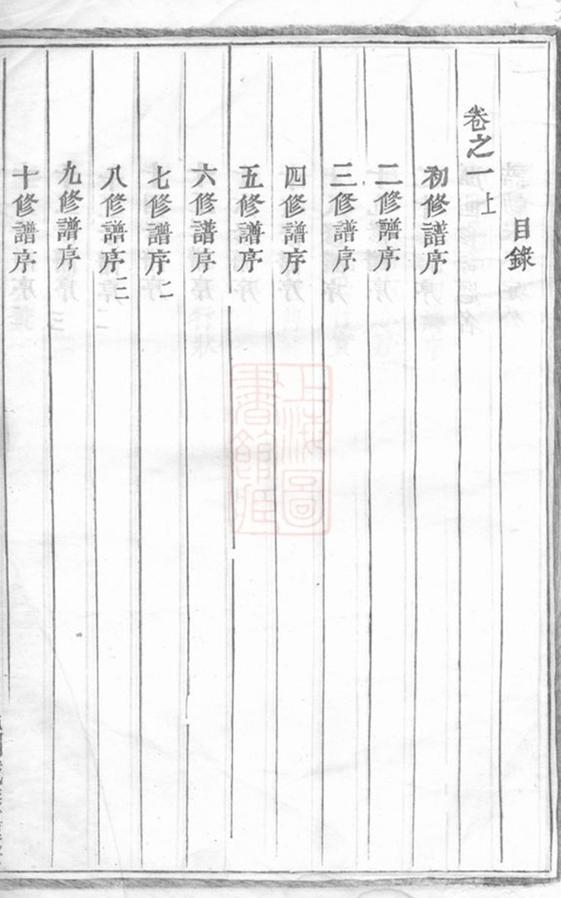 目錄
卷之一上
初修譜序
二修譜序
三修譜序
四修譜序
五修譜序
六修譜序
七修譜序二
八修譜序三
九修譜序
十修譜序
上海圖書館藏